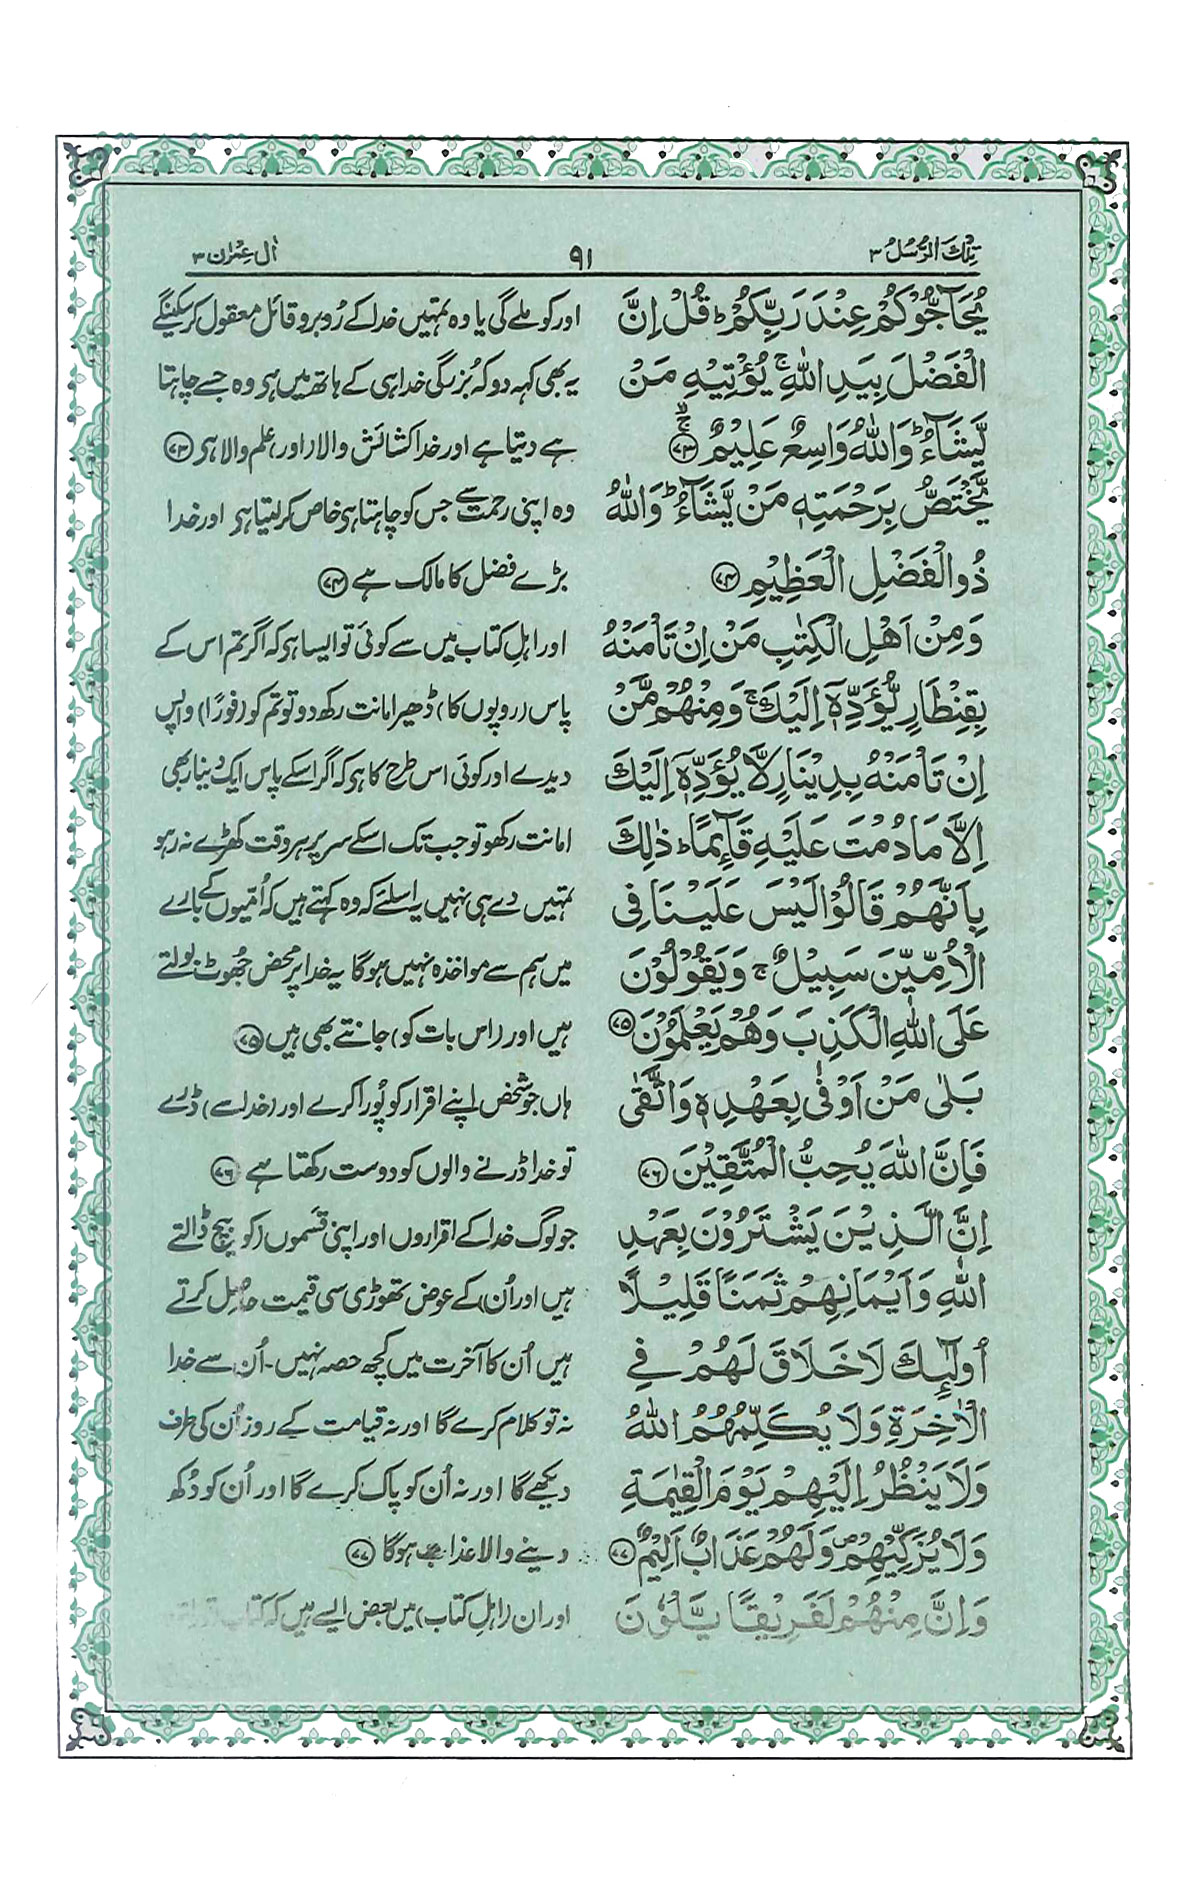 تِلْكَ الرُّسُلُ ۳
۹۱
اٰل عِمْرٰن ۳
يُحَآجُّوْكُمْ عِنْدَ رَبِّكُمْ ؕ قُلْ اِنَّ
الْفَضْلَ بِيَدِ اللّٰهِ ۚ يُؤْتِيْهِ مَنْ
يَّشَآءُ ؕ وَاللّٰهُ وَاسِعٌ عَلِيْمٌ ۚۙ ﴿۷۳﴾
يَّخْتَصُّ بِرَحْمَتِهٖ مَنْ يَّشَآءُ ؕ وَاللّٰهُ
ذُو الْفَضْلِ الْعَظِيْمِ ﴿۷۴﴾
وَمِنْ اَهْلِ الْكِتٰبِ مَنْ اِنْ تَاْمَنْهُ
بِقِنْطَارٍ يُّؤَدِّهٖٓ اِلَيْكَ ۚ وَمِنْهُمْ مَّنْ
اِنْ تَاْمَنْهُ بِدِيْنَارٍ لَّا يُؤَدِّهٖٓ اِلَيْكَ
اِلَّا مَا دُمْتَ عَلَيْهِ قَآئِمًا ؕ ذٰلِكَ
بِاَنَّهُمْ قَالُوْا لَيْسَ عَلَيْنَا فِى
الْاُمِّيّٖنَ سَبِيْلٌ ۚ وَيَقُوْلُوْنَ
عَلَى اللّٰهِ الْكَذِبَ وَهُمْ يَعْلَمُوْنَ ﴿۷۵﴾
بَلٰى مَنْ اَوْفٰى بِعَهْدِهٖ وَاتَّقٰى
فَاِنَّ اللّٰهَ يُحِبُّ الْمُتَّقِيْنَ ﴿۷۶﴾
اِنَّ الَّذِيْنَ يَشْتَرُوْنَ بِعَهْدِ
اللّٰهِ وَاَيْمَانِهِمْ ثَمَنًا قَلِيْلًا
اُولٰٓئِكَ لَا خَلَاقَ لَهُمْ فِى
الْاٰخِرَةِ وَلَا يُكَلِّمُهُمُ اللّٰهُ
وَلَا يَنْظُرُ اِلَيْهِمْ يَوْمَ الْقِيٰمَةِ
وَلَا يُزَكِّيْهِمْ ۪ وَلَهُمْ عَذَابٌ اَلِيْمٌ ﴿۷۷﴾
وَاِنَّ مِنْهُمْ لَفَرِيْقًا يَّلْوٗنَ
اور کو ملے گی یا وہ تمہیں خدا کے رُوبرو قائل معقول کر سکینگے
یہ بھی کہہ دو کہ بُزرگی خدا ہی کے ہاتھ میں ہی وہ جسے چاہتا
ہے دیتا ہے اور خدا کشائش والا (اور) علم والا ہی ﴿۷۳﴾
وہ اپنی رحمت سے جس کو چاہتا ہی خاص کر لیتا ہی اور خدا
بڑے فضل کا مالک ہے ﴿۷۴﴾
اور اہلِ کتاب میں سے کوئی تو ایسا ہی کہ اگر تم اس کے
پاس (روپوں کا) ڈھیر امانت رکھ دو تو تم کو (فورًا) واپس
دیدے اور کوئی اس طرح کا ہی کہ اگر اسکے پاس ایک دینار بھی
امانت رکھو تو جب تک اسکے سر پر ہر وقت کھڑے نہ رہو
تمہیں دے ہی نہیں یہ اسلئے کہ وہ کہتے ہیں کہ اُمیّوں کے بارے
میں ہم سے مواخذہ نہیں ہوگا یہ خدا پر محض جُھوٹ بولتے
ہیں اور (اس بات کو) جانتے بھی ہیں ﴿۷۵﴾
ہاں جو شخص اپنے اقرار کو پُورا کرے اور (خدا سے) ڈرے
تو خدا ڈرنے والوں کو دوست رکھتا ہے ﴿۷۶﴾
جو لوگ خدا کے اقراروں اور اپنی قسموں (کو بیچ ڈالتے
ہیں اور اُن) کے عوض تھوڑی سی قیمت حاصل کرتے
ہیں اُن کا آخرت میں کچھ حصہ نہیں۔ اُن سے خدا
نہ تو کلام کرے گا اور نہ قیامت کے روز اُن کی طرف
دیکھے گا اور نہ اُن کو پاک کرے گا اور اُن کو دُکھ
دینے والا عذاب ہوگا ﴿۷۷﴾
اور ان (اہلِ کتاب) میں بعض ایسے ہیں کہ کتاب